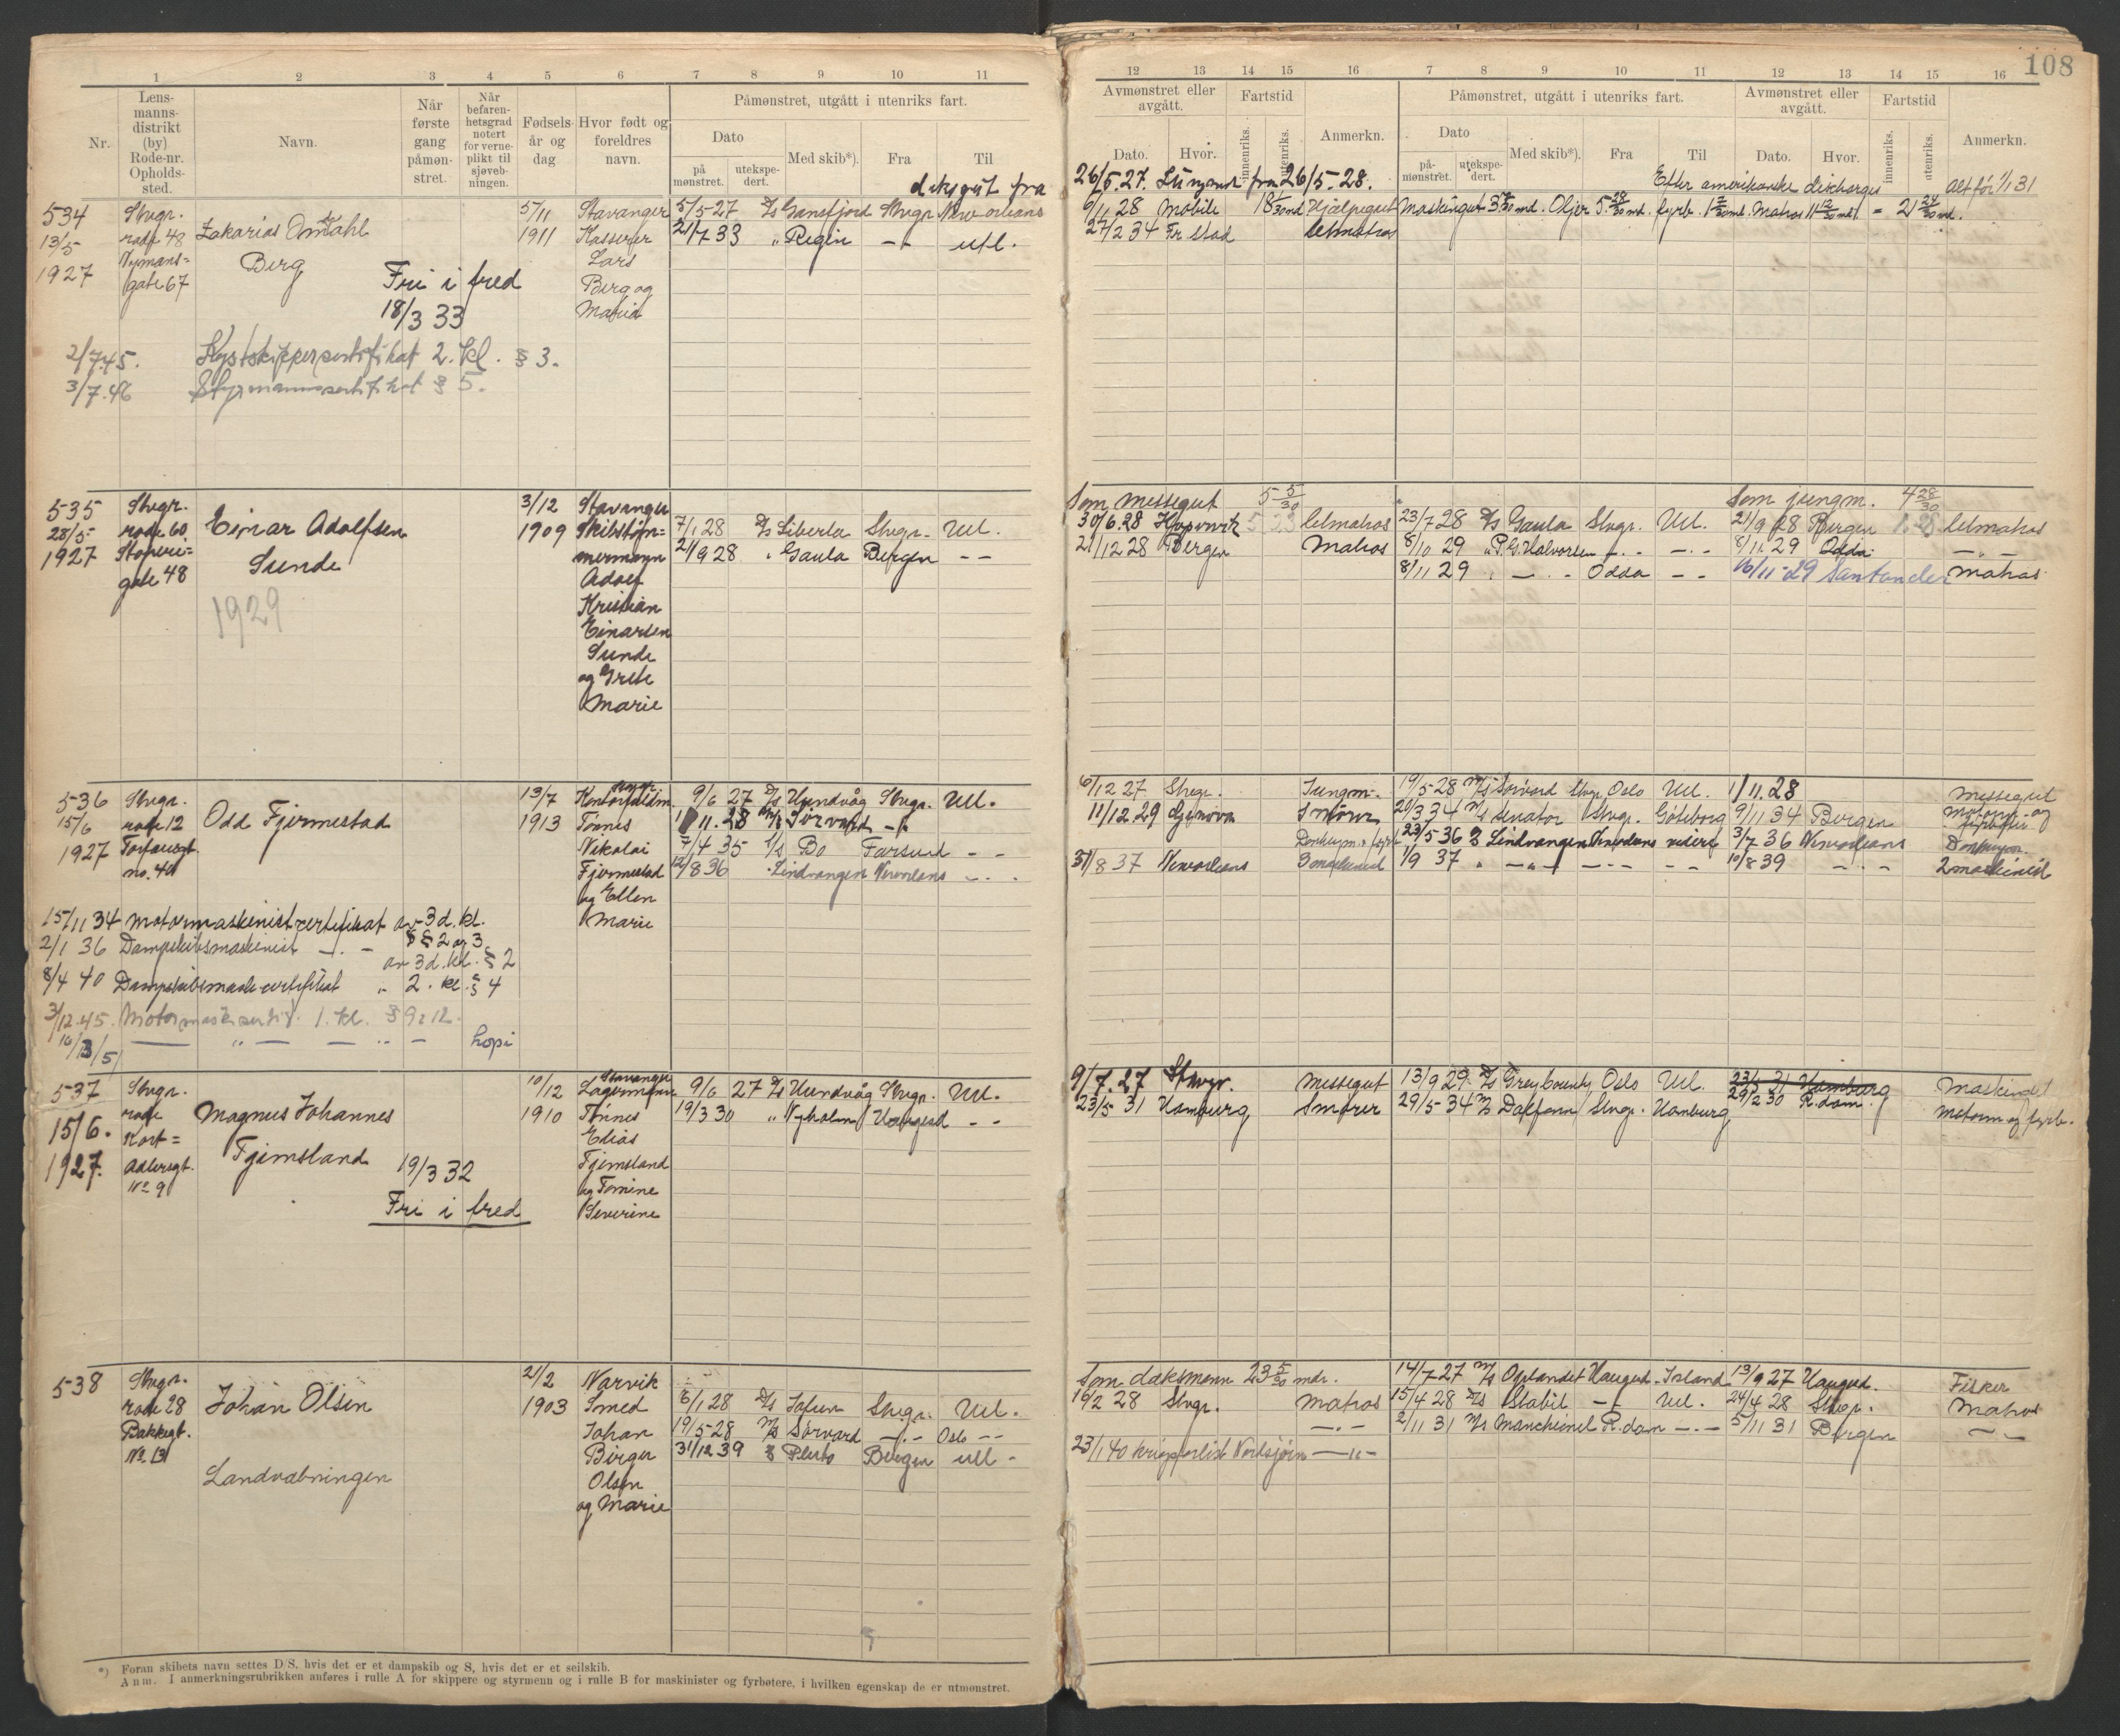 1 2 3 4 5 6 7 8 9 10 11
Nr.
Lens-
manns-
distrikt
(by)
Rode-nr.
Opholds-
sted.
Navn.
Når
første
gang
påmøn-
stret.
Når
befaren-
hetsgrad
notert
for verne-
plikt til
sjøveb-
ningen.
Fødsels-
år og
dag
Hvor født og
foreldres
navn.
Påmønstret, utgått i utenriks fart.
Dato
på
mønstret.
utekspe-
dert.
Med skib*).
Fra
Til
deksgut fra
534 Stvgr. 5/11 Stavanger 5/5-27 D/S Gansfjord Stvgr. New orleans
13/5 rode 48 Zakarias Omdahl 1911 Kasserer 21/7 33 " Regin utl.
1927 gate 67 Berg Lars
Fri i fred Berg og
18/3 33 Maria
2/7.45. Kystskippersertifikat 2. kl. § 3.
3/7.46 Styrmannssertifikat § 5.
535 Stvgr. 3/12 Stavanger
28/5- rode 60. Einar Adolfsen 1909 Skibstøm= 7/1 28 D/S Liberta Stvgr. Utl.
1927 Sunde mermann 21/9 28 " Gaula Bergen - -
gate 48 Adolf
1929 Kristian
Einarsen
Sunde
og Grete
Marie
536 Stvgr. 13/7 Kontorfuldm. 9/6 27 D/S Hundvåg Stvgr. Utl.
15/6 rode 12 Odd Fjermestad 1913 Tønnes 11.28 M/S Sørvard - " -
1927 no. 40 Nikolai 7/4 35 Bo Farsund - -
Fjermestad 12/8 36 " Lindvangen Neworleans - . -
og Ellen
Marie
15/11 34 Motormaskinistcertifikat av 3d. kl.
§ § 2 og 3
2/1 36 Dampskibsmaskinist - . -
av 3d. kl. § 2
8/4 40 Dampskibsmask certifikat " 2. kl. § 4
3/12.45. Motormask.sertif. 1. kl. § 9 12.
kopi
537 Stvgr. 10/12 Stavanger 9/6 27 D/S Hundvåg Stvgr. Utl.
15/6. rode Magnus Johannes 1910 Tønnes 19/3 30 " Nyholm Haugesd - -
Kort= Elias
1927. Adlersgt. Fjemsland 19/3 32 Fjemsland
No 9 og Tomine
Fri i fred Severine
538 Stvgr. 21/2 Narvik
rode 28 Johan Olsen 1903 Smed 6/1 28 D/S Stvgr. Utl.
Bakkegt. Johan 19/5-28 M/S Sørvard - . - Oslo - -
No 131 Birger 31/12 39 Pluto Bergen utl -
Landvæbningen Olsen
og Marie
*) Foran skibets navn settes D/S. hvis det er et dampskib og S, hvis det er et seilskib.
Anm. I anmerkningsrubrikken anføres i rulle A for skippere og styrmenn og i rulle B for maskinister og fyrbøtere, i hvilken egenskap de er utmønstret.
108
12 13 14 15 16 7 8 9 10 11 12 13 14 15 16
Avmønstret eller
avgått.
Fartstid
Dato.
Hvor.
innenriks.
utenriks.
Anmerkn.
Påmønstret, utgått i utenriks fart.
Dato
på-
mønstret.
utekspe-
dert.
Med skib*).
Fra
Til
Avmønstret eller
avgått.
Dato.
Hvor.
Fartstid
innenriks.
utenriks.
Anmerkn.
26/5.27. Jungmand fra 26/5-28. Efter amerikanske discharges alt før 1/1 31
6/11 28 Mobile Hjælpegut Maskingut Oljer fyrb. Matros
27/2 34 Fr. stad letmatros
Som messegut 5 5/30 Som jungm. 4 28/30
30/6.28 letmatros 23/7 28 D/S Gaula Stvgr. Utl. 21/9 28 Bergen letmatros
21/12 28 Bergen Matros 8/10 29 " P.G. Halvorsen - . - - . - 8/11.29 Odda - " -
8/11 29 " - . - Odda - - 16/11-29 Santander Matros
6/12 27 Stvgr. Jungm. 19/5-28 M/S Sørvard Stvgr. Oslo Utl. 1/11.28 Messegut
11/12 29 Genova Smører 20/3 34 M/S Senator Stvgr. Göteborg 9/11 34 Bergen Motorm. og
23/5 36 Lindvangen Neworleans videre 3/7 36 Neworleans
31/8 37 Neworleans 3 maskinist 1/9 37 " - " - - - - - - 10/8 39 - . - 2 maskinist
9/7.27 Stavgr. Messegut 13/9 29 D/S Grey County Oslo Utl. 23/5 31 Hamburg
29/2 30 R.dam.
23/5 31 Hamburg Smører 29/5-34 Stvgr. Hamburg Motorm og fyrb.
Som daksmann 23 5/30 mdr. 14/7-27 M/S Oplandet Haugsd. Island 13/9 27 Haugsd. Fisker
16/2 28 Stvgr. Matros 15/4 28 D/S Stabil - " - Utl. 24/4 28 Stvgr. Matros
- . - 2/11 31 M/S Manchinel R.dam - . - 5/11 31 Bergen - " -
23/1 40 krigsforlist Nordsjøen - " -